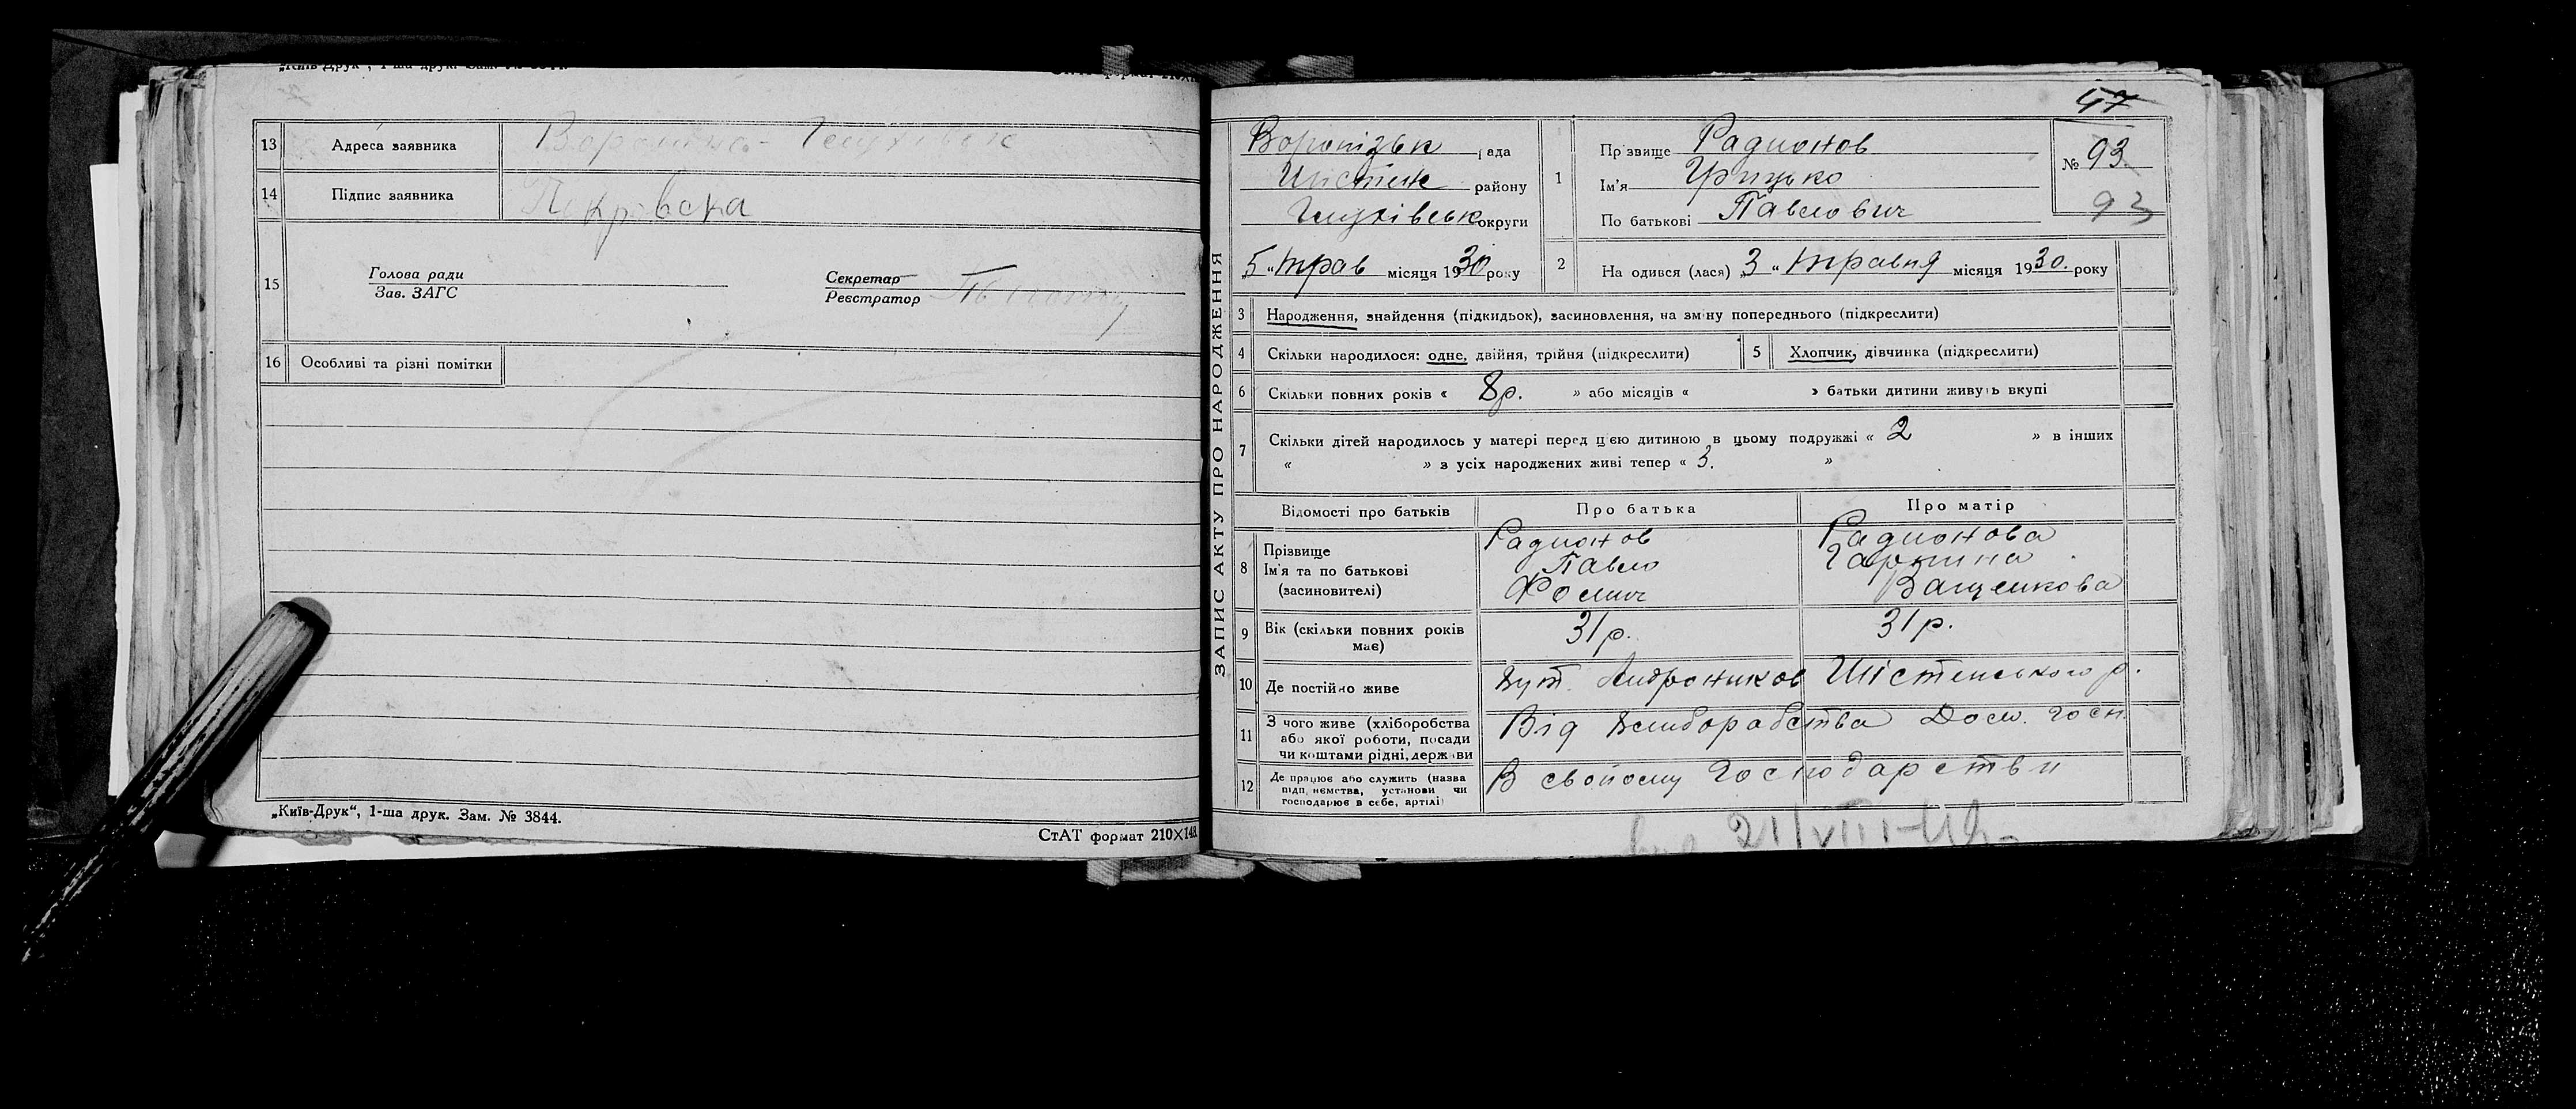 13 Адреса заявника
14 Підпис заявника
15 Голова ради
Зав. ЗАГС
Секретар
Реєстратор
16 Особливі та різні помітки
„Київ-Друк“, 1-ша друк. Зам. № 3844.
СтАТ формат 210×148
47
ЗАПИС АКТУ ПРО НАРОДЖЕННЯ
рада
району
Глухівськ округи
5 „ трав місяця 1930 року
1 Прізвище Радионов
Ім'я Грицько
По батькові Павлович
№ 93
93
2 На одився (лася) 3 „ травня місяця 1930. року
3 Народження, знайдення (підкидьок), засиновлення, на зміну попереднього (підкреслити)
4 Скільки народилося: одне, двійня, трійня (підкреслити)
5 Хлопчик, дівчинка (підкреслити)
6 Скільки повних років « 8р. » або місяців « » батьки дитини живуть вкупі
7 Скільки дітей народилось у матері перед цією дитиною в цьому подружжі « 2 » в інших
« » з усіх народжених живі тепер « 3. »
Відомості про батьків Про батька Про матір
8 Прізвище
Ім'я та по батькові
(засиновителі)
Радионов
Павло
Фомич
Радионова
9 Вік (скільки повних років має)
31р. 31р.
10 Де постійно живе
хут. Андроников Шістенського р.
11 З чого живе (хліборобства
або якої роботи, посади
чи коштами рідні, держави
Від хлиборабства Дом. госп
12 Де працює або служить (назва
підп иємства, установи чи
господарює в себе, артілі)
В свойому господарстви
21/VIII